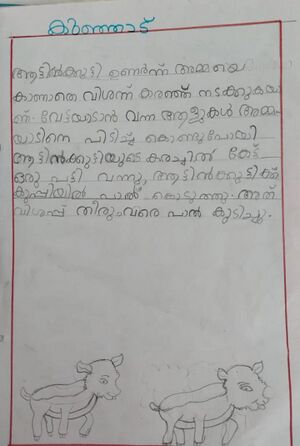 കുഞ്ഞാട്
ആട്ടിൻക്കുട്ടി ഉണർന്ന് അമ്മയെ
കാണാതെ വിശന്ന് കരഞ്ഞ് നടക്കുകയാ
ണ്. വേട്ടയാടാൻ വന്ന ആളുകൾ അമ്മ
യാടിനെ പിടിച്ചു കൊണ്ടുപോയി
ആട്ടിൻക്കുട്ടിയുടെ കരച്ചിൽ കേട്ട്
ഒരു പട്ടി വന്നു, ആട്ടിൻക്കുട്ടിക്ക്
കുപ്പിയിൽ പാൽ കൊടുത്തു. അത്
വിശപ്പ് തീരുംവരെ പാൽ കുടിച്ചു.